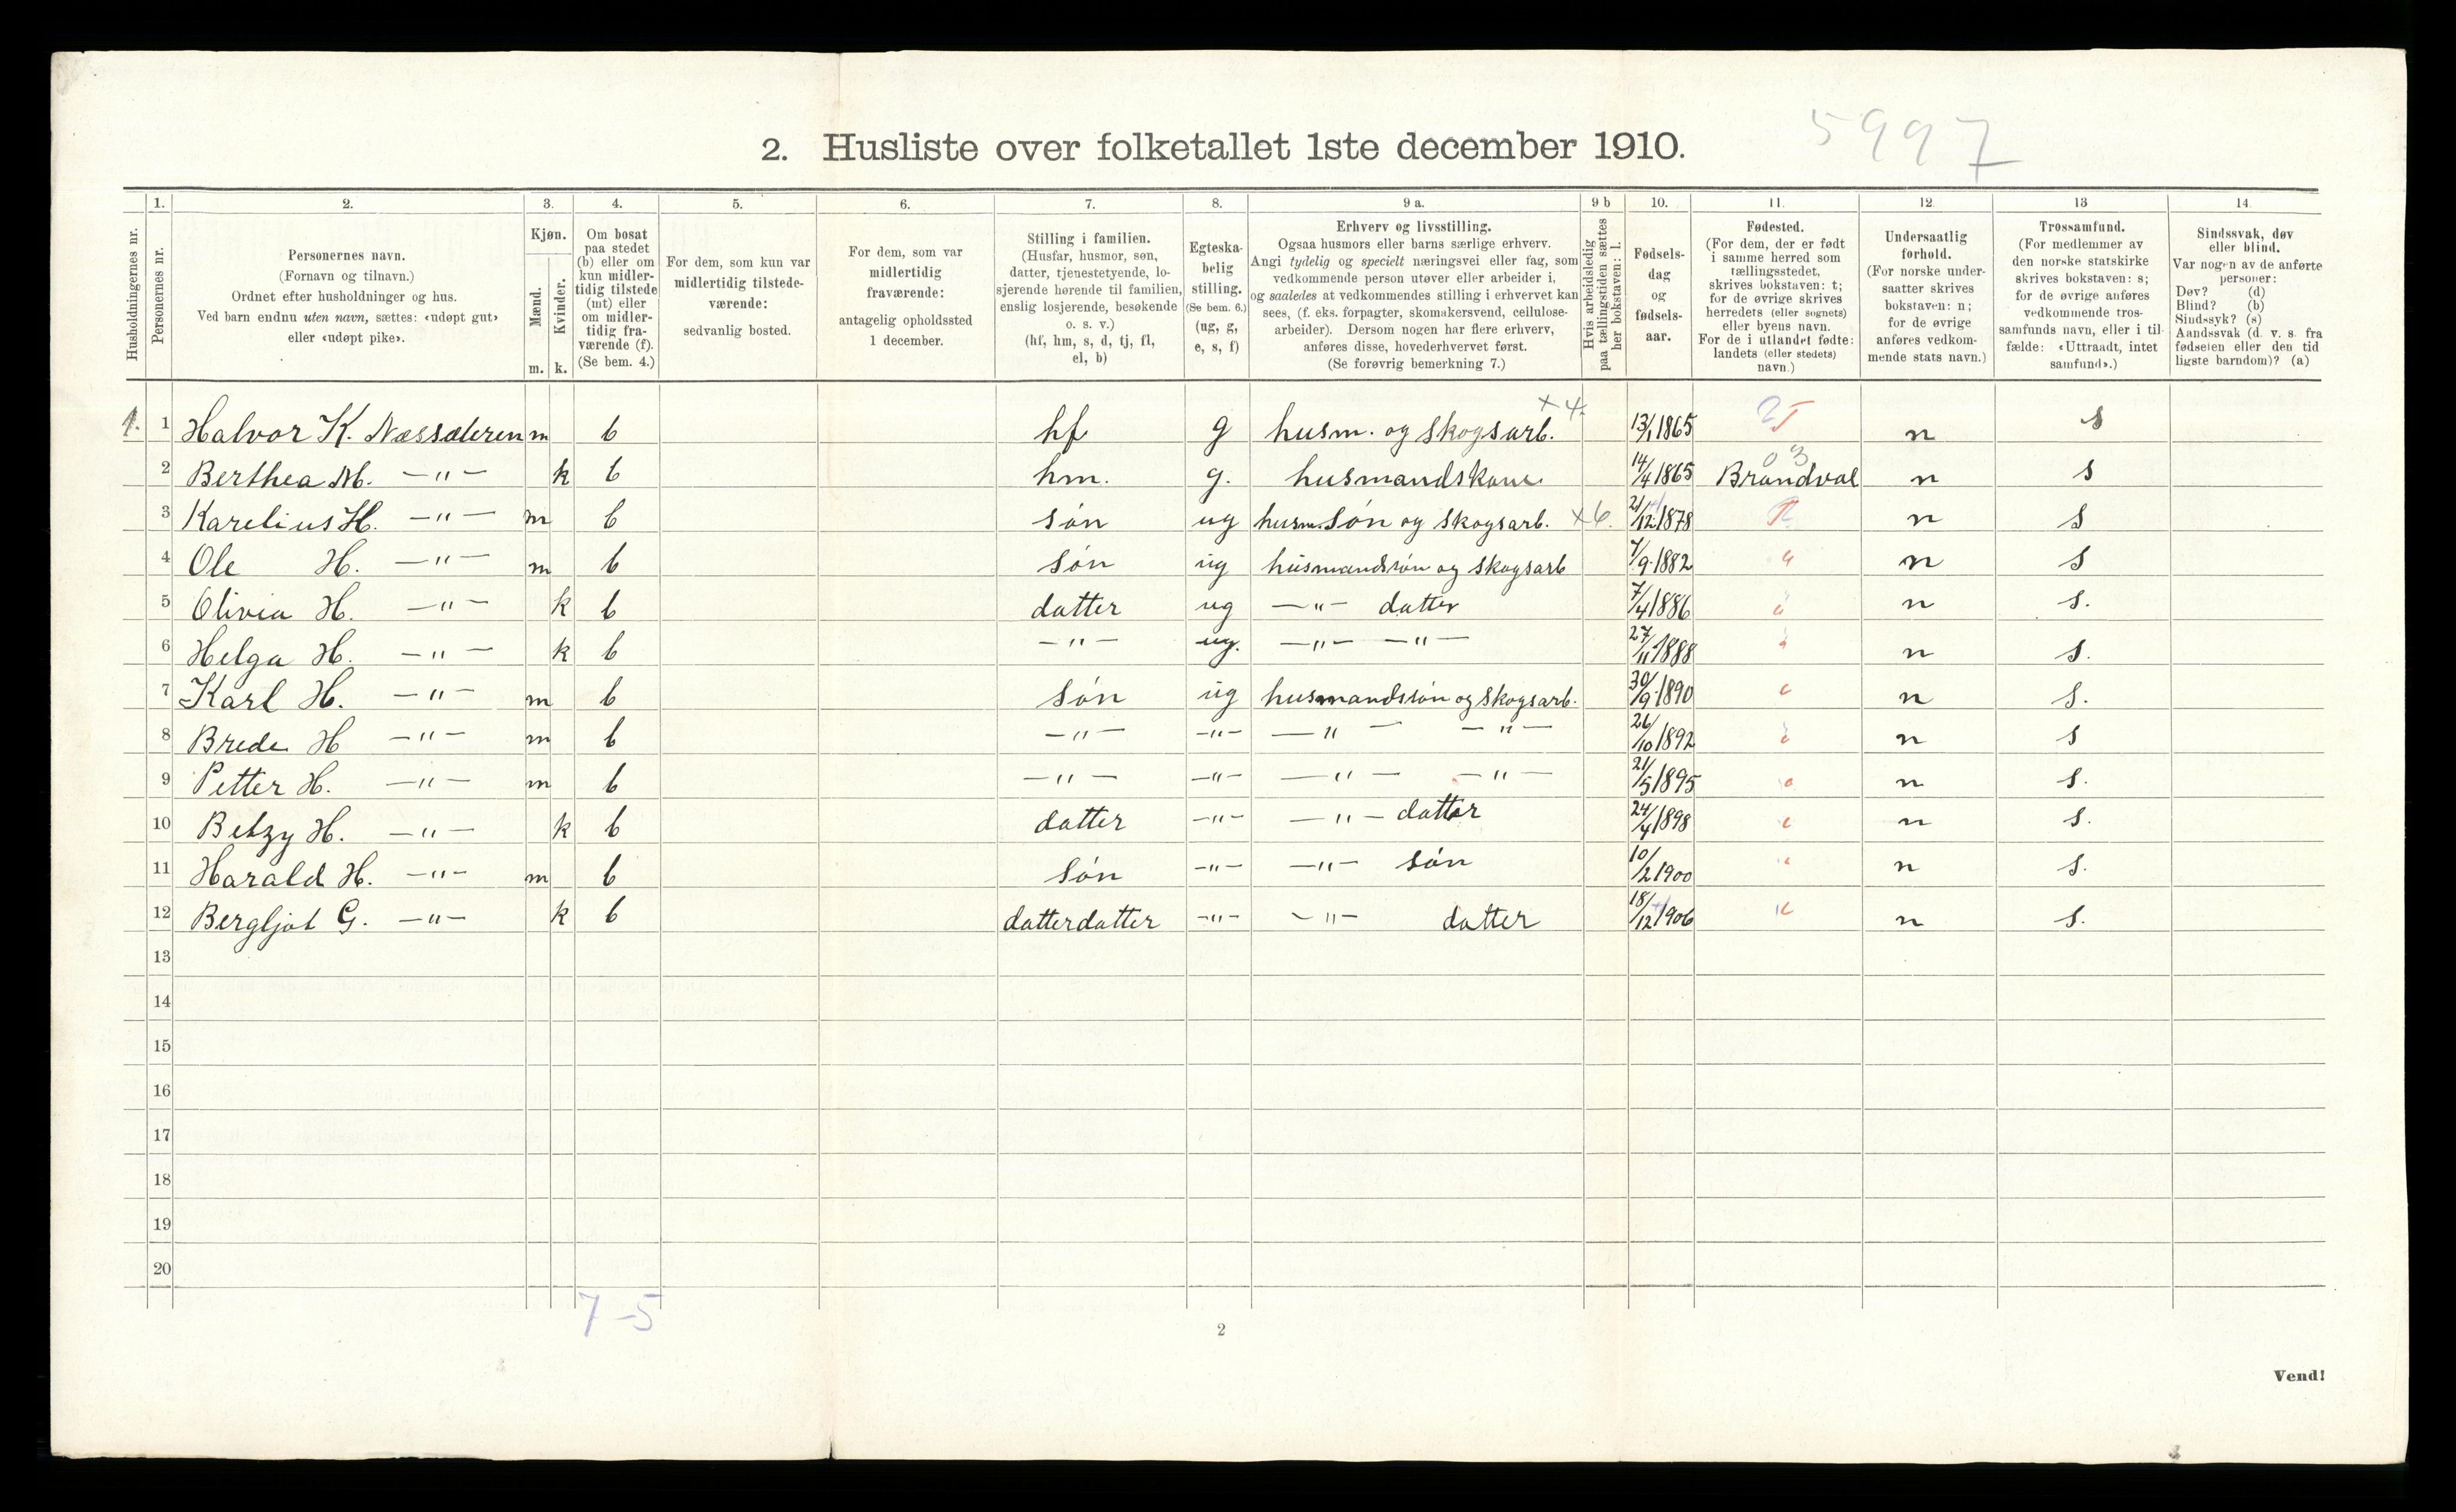 5997
2. Husliste over folketallet 1ste december 1910.
Husholdningernes nr.
1. Personernes nr.
2. Personernes navn.
(Fornavn og tilnavn.)
Ordnet efter husholdninger og hus.
Ved barn endnu uten navn, sættes: «udøpt gut»
eller «udøpt pike».
3. Kjøn.
Mænd. m.
Kvinder. k.
4. Om bosat
paa stedet
(b) eller om
kun midler-
tidig tilstede
(mt) eller
om midler-
tidig fra-
værende (f).
(Se bem. 4.)
5. For dem, som kun var
midlertidig tilstede-
værende:
sedvanlig bosted.
6. For dem, som var
midlertidig
fraværende:
antagelig opholdssted
1 december.
7. Stilling i familien.
(Husfar, husmor, søn,
datter, tjenestetyende, lo-
sjerende hørende til familien,
enslig losjerende, besøkende
o. s. v.)
(hf, hm, s, d, tj, fl,
el, b)
8. Egteska-
belig
stilling.
(Se bem. 6.)
(ug, g,
e, s, f)
9 a. Erhverv og livsstilling.
Ogsaa husmors eller barns særlige erhverv.
Angi tydelig og specielt næringsvei eller fag, som
vedkommende person utøver eller arbeider i,
og saaledes at vedkommendes stilling i erhvervet kan
sees, (f. eks. forpagter, skomakersvend, cellulose-
arbeider). Dersom nogen har flere erhverv,
anføres disse, hovederhvervet først.
(Se forøvrig bemerkning 7.)
9 b Hvis arbeidsledig
paa tællingstiden sættes
her bokstaven: l.
10. Fødsels-
dag
og
fødsels-
aar.
11. Fødested.
(For dem, der er født
i samme herred som
tællingsstedet,
skrives bokstaven: t;
for de øvrige skrives
herredets (eller sognets)
eller byens navn.
For de i utlandet fødte:
landets (eller stedets)
navn.)
12. Undersaatlig
forhold.
(For norske under-
saatter skrives
bokstaven: n;
for de øvrige
anføres vedkom-
mende stats navn.)
13 Trossamfund.
(For medlemmer av
den norske statskirke
skrives bokstaven: s;
for de øvrige anføres
vedkommende tros-
samfunds navn, eller i til-
fælde: «Uttraadt, intet
samfund».)
14 Sindssvak, døv
eller blind.
Var nogen av de anførte
personer:
Døv? (d)
Blind? (b)
Sindssyk? (s)
Aandssvak (d. v. s. fra
fødselen eller den tid
ligste barndom)? (a)
1. 1 Halvor K. Næssæteren m b hf g husm. og skogsarb. x4 13/1 1865 T n s
2 Berthea M. —"— k b hm. g. husmandskone 14/4 1865 03 Brandval n s
3 Karelius H. —"— m b søn ug husm. søn og skogsarb. x6. 21/12 1878 n s
4 Ole H. —"— m b søn ug husmandssøn og skogsarb 7/9 1882 " n s
5 Olivia H. —"— k b datter ug —"— datter 7/4 1886 " n s.
6 Helga H. —"— k b —"— ug. —"— —"— 27/11 1888 " n s.
7 Karl H. —"— m b søn ug husmandssøn og skogsarb. 30/9 1890 " n s.
8 Brede H —"— m b —"— —"— —"— —"— 26/10 1892 " n s
9 Petter H. —"— m b —"— —"— —"— —"— 21/5 1895 " n s.
10 Betzy H. —"— k b datter —"— —"— datter 24/4 1898 " n s.
11 Harald H. —"— m b søn —"— —"— søn 10/2 1900 " n s.
12 Bergljot G. —"— k b datterdatter —"— —"— datter 18/12 1906 " n s.
13
14
15
16
17
18
19
20
7-5
2
Vend!